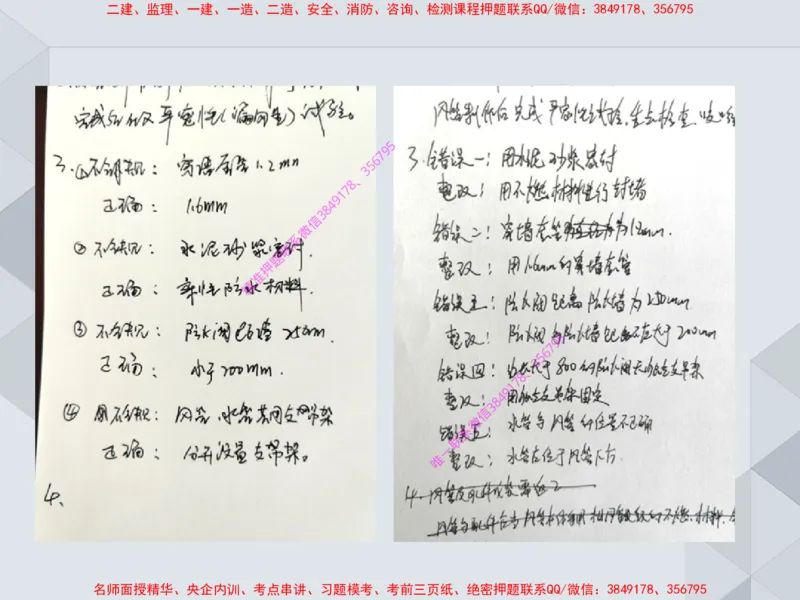 二建、监理、一建、一造、二造、安全、消防、咨询、检测课程押题联系QQ/微信：3849178、356795
严密性（漏风量）试验。
3.①不合规：穿墙厚度1.2mm
正确：1.6mm
②不合规：水泥砂浆密封.
正确：柔性防水材料.
③不合规：防火阀距墙250mm.
正确：小于200mm.
④不合规：风管、水管共同支吊架
正确：分开设置支吊架。
4、
风管制作后完成严密性试验,
3.错误一：用水泥砂浆密封
整改：用不燃材料进行封堵
错误二：穿墙套管为1.2mm.
整改：用1.6mm的穿墙套管
错误三：防火阀距离防火墙为250mm
整改：防火阀与防火墙距离不大于200mm
错误四：边长大于800的防火阀未设支吊架
整改：用独立支吊架固定
错误五：水管与风管的位置不正确
整改：水管应位于风管下方.
4.
名师面授精华、央企内训、考点串讲、习题模考、考前三页纸、绝密押题联系QQ/微信：3849178、356795